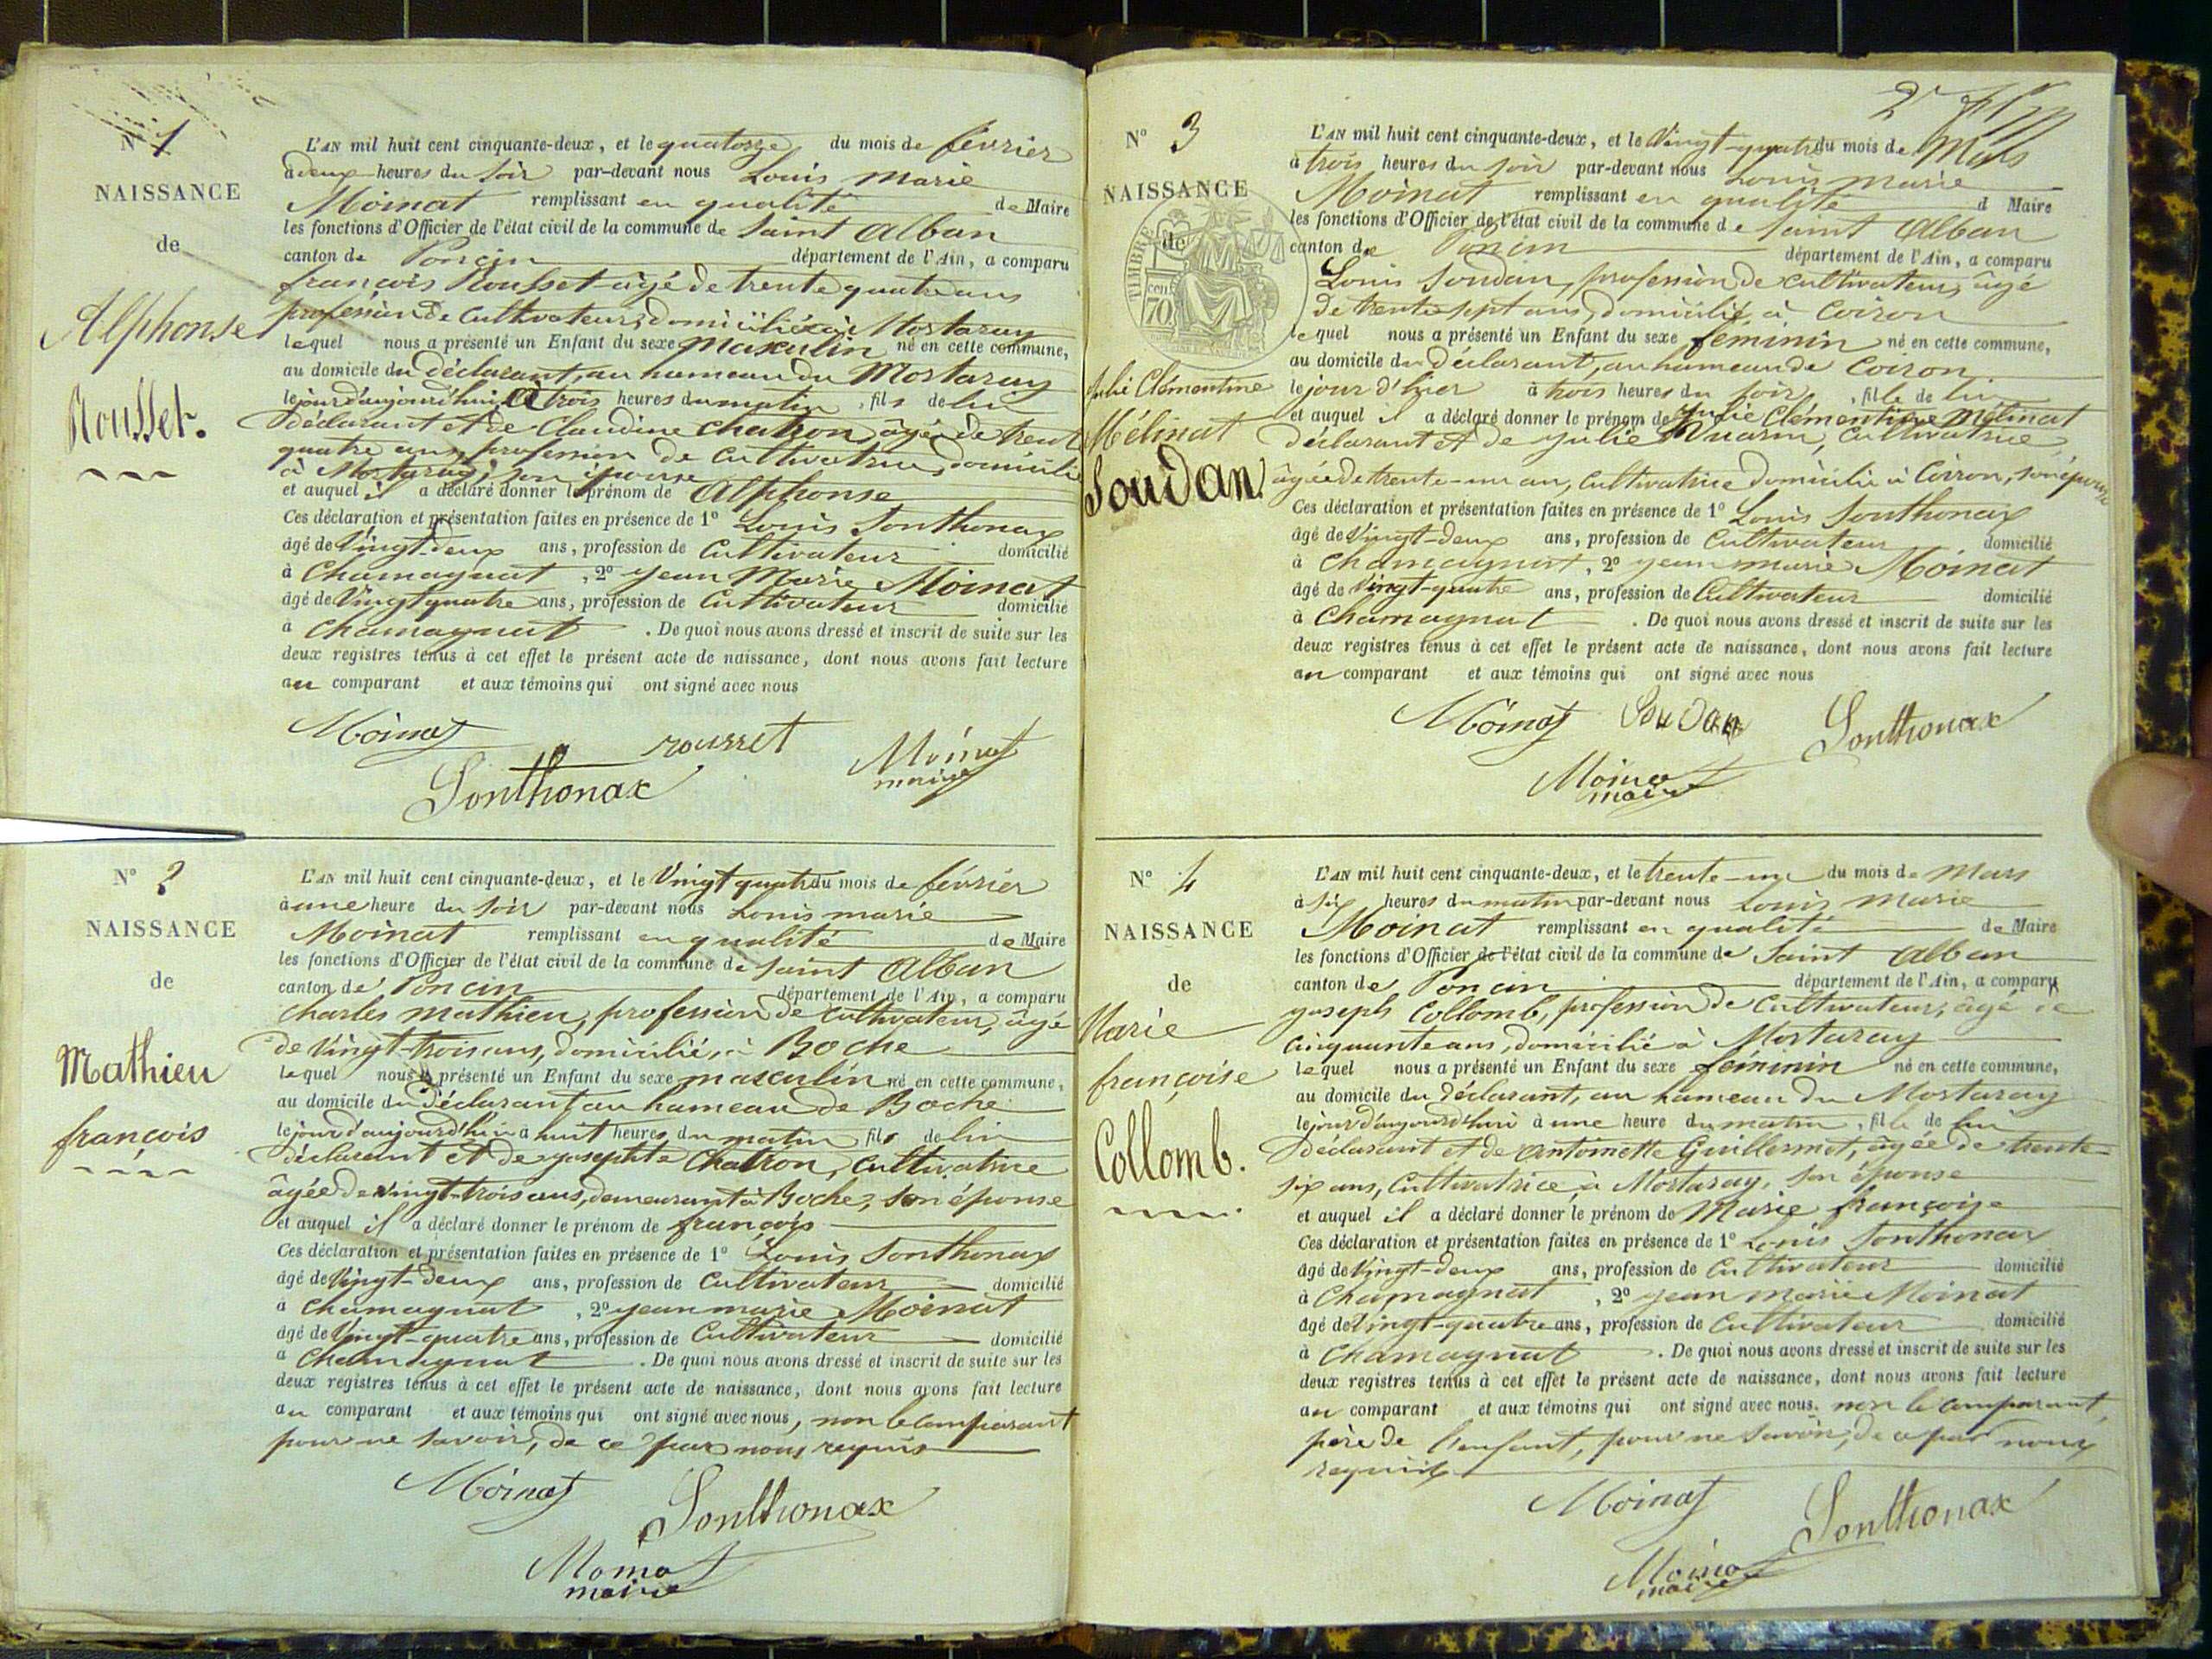 N° 1
NAISSANCE
de
Alphonse
Rousset.
L'AN mil huit cent cinquante-deux, et le quatorze du mois de février
à deux heures du soir par-devant nous Louis Marie
Moinat remplissant en qualité de Maire
les fonctions d'Officier de l'état civil de la commune de Saint Alban
canton de Poncin département de l'Ain, a comparu
françois Rousset âgé de trente quatre ans
profession de Cultivateur, domicilié à Mortaray
lequel nous a présenté un Enfant du sexe masculin né en cette commune,
au domicile du déclarant, au hameau du Mortaray
le jour d'aujourd'hui, à trois heures du matin, fils de lui
déclarant et de Claudine Chatron, âgée de trente
quatre ans, profession de Cultivatrice, domiciliée
à Mortaray, son épouse
et auquel il a déclaré donner le prénom de Alphonse
Ces déclaration et présentation faites en présence de 1° Louis Sonthonax
âgé de Vingt-deux ans, profession de Cultivateur domicilié
à Chamagnat, 2° Jean Marie Moinat
âgé de Vingt quatre ans, profession de Cultivateur domicilié
à Chamagnat. De quoi nous avons dressé et inscrit de suite sur les
deux registres tenus à cet effet le présent acte de naissance, dont nous avons fait lecture
au comparant et aux témoins qui ont signé avec nous
Moinat rousset Moinat
Sonthonax maire
N° 2
NAISSANCE
de
Mathieu
françois
L'AN mil huit cent cinquante-deux, et le Vingt quatre du mois de février
à une heure du soir par-devant nous Louis marie
Moinat remplissant en qualité de Maire
les fonctions d'Officier de l'état civil de la commune de Saint Alban
canton de Poncin département de l'Ain, a comparu
Charles Mathieu, profession de Cultivateur, âgé
de Vingt-trois ans, domicilié, à Boche
lequel nous a présenté un Enfant du sexe masculin né en cette commune,
au domicile du déclarant au hameau de Boche
le jour d'aujourd'hui à huit heures du matin, fils de lui
déclarant et de Josephte Chatron, Cultivatrice
âgée de vingt-trois ans, demeurant à Boche, son épouse
et auquel il a déclaré donner le prénom de françois
Ces déclaration et présentation faites en présence de 1° Louis Sonthonax
âgé de Vingt-deux ans, profession de Cultivateur domicilié
à Chamagnat, 2° Jean marie Moinat
âgé de Vingt-quatre ans, profession de Cultivateur domicilié
à Chamagnat. De quoi nous avons dressé et inscrit de suite sur les
deux registres tenus à cet effet le présent acte de naissance, dont nous avons fait lecture
au comparant et aux témoins qui ont signé avec nous, non le comparant
pour ne savoir, de ce par nous requis
Moinat Sonthonax
Moinat
maire
N° 3
NAISSANCE
de
TIMBRE
70 cent
Julie Clémentine
Mélinat
Soudan
L'AN mil huit cent cinquante-deux, et le Vingt-quatre du mois de Mars
à trois heures du soir par-devant nous Louis marie
Moinat remplissant en qualité d Maire
les fonctions d'Officier de l'état civil de la commune de Saint Alban
canton de Poncin département de l'Ain, a comparu
Louis Soudan, profession de Cultivateur, âgé
de trente sept ans, domicilié à Coiron
lequel nous a présenté un Enfant du sexe féminin né en cette commune,
au domicile du déclarant, au hameau de Coiron
le jour d'hier à trois heures du soir, fille de lui
et auquel il a déclaré donner le prénom de Julie Clémentine Mélinat
déclarant et de Julie Cultivatrice
âgée de trente-un an, Cultivatrice domiciliée à Coiron, son épouse
Ces déclaration et présentation faites en présence de 1° Louis Sonthonax
âgé de Vingt-deux ans, profession de Cultivateur domicilié
à Chamagnat, 2° Jean marie Moinat
âgé de Vingt-quatre ans, profession de Cultivateur domicilié
à Chamagnat. De quoi nous avons dressé et inscrit de suite sur les
deux registres tenus à cet effet le présent acte de naissance, dont nous avons fait lecture
au comparant et aux témoins qui ont signé avec nous
Moinat Soudan Sonthonax
Moinat
maire
N° 4
NAISSANCE
de
Marie
françoise
Collomb.
L'AN mil huit cent cinquante-deux, et le trente-un du mois de Mars
à six heures du matin par-devant nous Louis Marie
Moinat remplissant en qualité de Maire
les fonctions d'Officier de l'état civil de la commune de Saint Alban
canton de Poncin département de l'Ain, a comparu
Joseph Collomb, profession de Cultivateur, âgé de
Cinquante ans, domicilié à Mortaray
lequel nous a présenté un Enfant du sexe féminin né en cette commune,
au domicile du déclarant, au hameau du Mortaray
le jour d'aujourd'hui à une heure du matin, fille de lui
déclarant et de Antoinette Guillermet, âgée de trente-
six ans, Cultivatrice, à Mortaray, son épouse
et auquel il a déclaré donner le prénom de Marie françoise
Ces déclaration et présentation faites en présence de 1° Louis Sonthonax
âgé de Vingt-deux ans, profession de Cultivateur domicilié
à Chamagnat, 2° Jean marie Moinat
âgé de Vingt-quatre ans, profession de Cultivateur domicilié
à Chamagnat. De quoi nous avons dressé et inscrit de suite sur les
deux registres tenus à cet effet le présent acte de naissance, dont nous avons fait lecture
au comparant et aux témoins qui ont signé avec nous. non le comparant,
père de l'enfant, pour ne savoir, de ce par nous
requis
Moinat Sonthonax
Moinat
maire